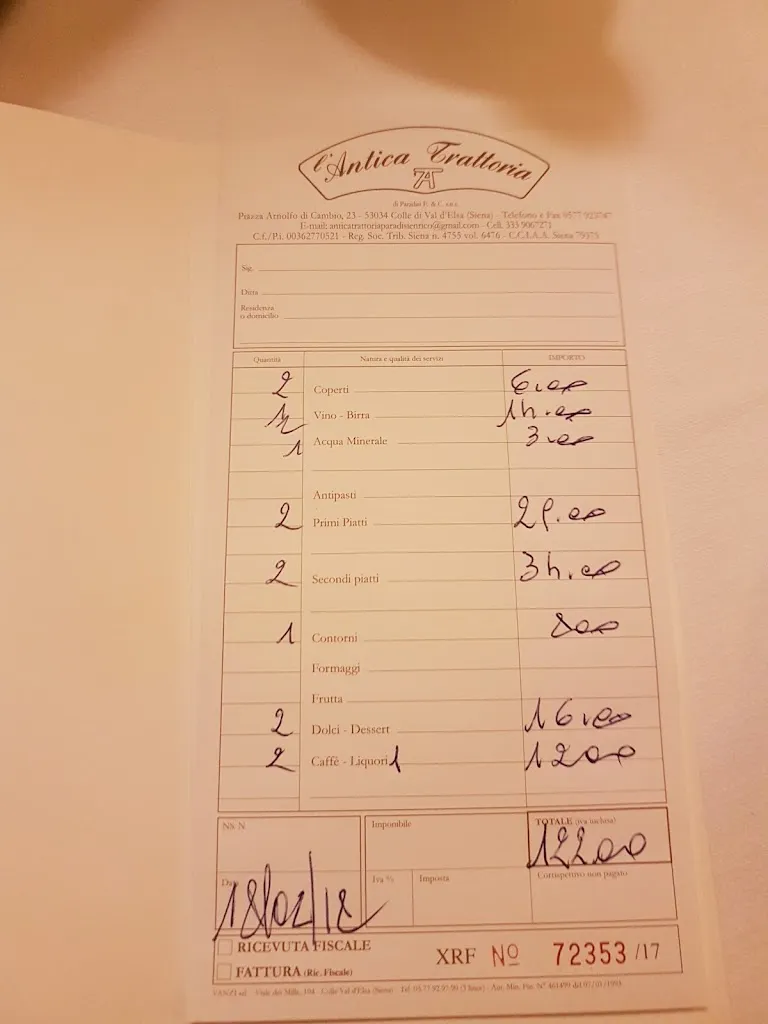 l'Antica Trattoria
AT
di Paradisi E. & C. s.n.c.
Piazza Arnolfo di Cambio, 23 - 53034 Colle di Val d'Elsa (Siena) - Telefono e Fax 0577 923747
E-mail: anticatrattoriaparadisienrico@gmail.com - Cell. 335 9067271
C.f./P.i. 00362770521 - Reg. Soc. Trib. Siena n. 4755 vol. 6476 - C.C.I.A.A. Siena 79375
Sig.
Ditta
Residenza
o domicilio
Quantità Natura e qualità dei servizi IMPORTO
2 Coperti 6.00
Vino - Birra 14.00
1 Acqua Minerale 3.00
Antipasti
2 Primi Piatti 29.00
2 Secondi piatti 34.00
1 Contorni 800
Formaggi
Frutta
2 Dolci - Dessert 16.00
2 Caffè - Liquori 1 1200
Ns. N. Imponibile TOTALE (iva inclusa)
12200
Data Iva % Imposta Corrispettivo non pagato
18/02/18
RICEVUTA FISCALE
XRF Nº 72353 /17
FATTURA (Ric. Fiscale)